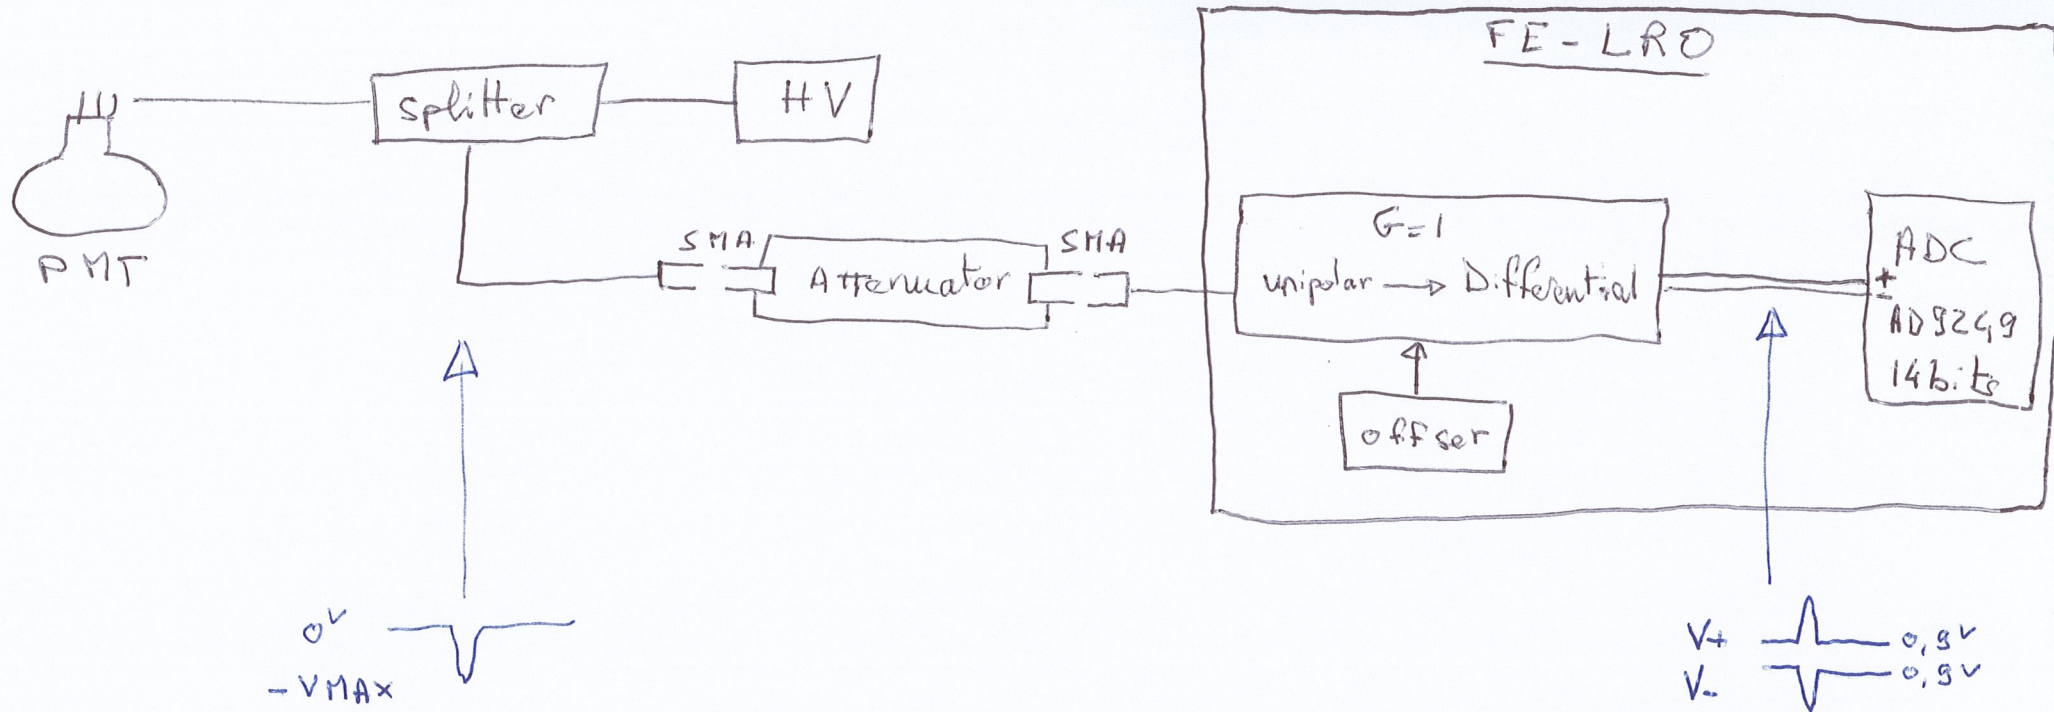 FE-LRO
splitter
HV
PMT
SMA
Attenuator
SMA
G=1
unipolar → Differential
ADC
+
-
AD9249
14bits
offset
0V
-VMAX
V+ 0,9V
V- 0,9V